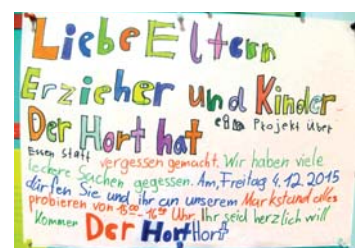 Liebe Eltern
Erzieher und Kinder
Der Hort hat ein Projekt über
Essen statt vergessen gemacht. Wir haben viele
leckere Sachen gegessen. Am, Freitag 4.12.2015
dürfen Sie und ihr an unserem Markstand alles
probieren von 15:00 - 16:30 Uhr. Ihr seid herzlich will
kommen Der Hort Hort